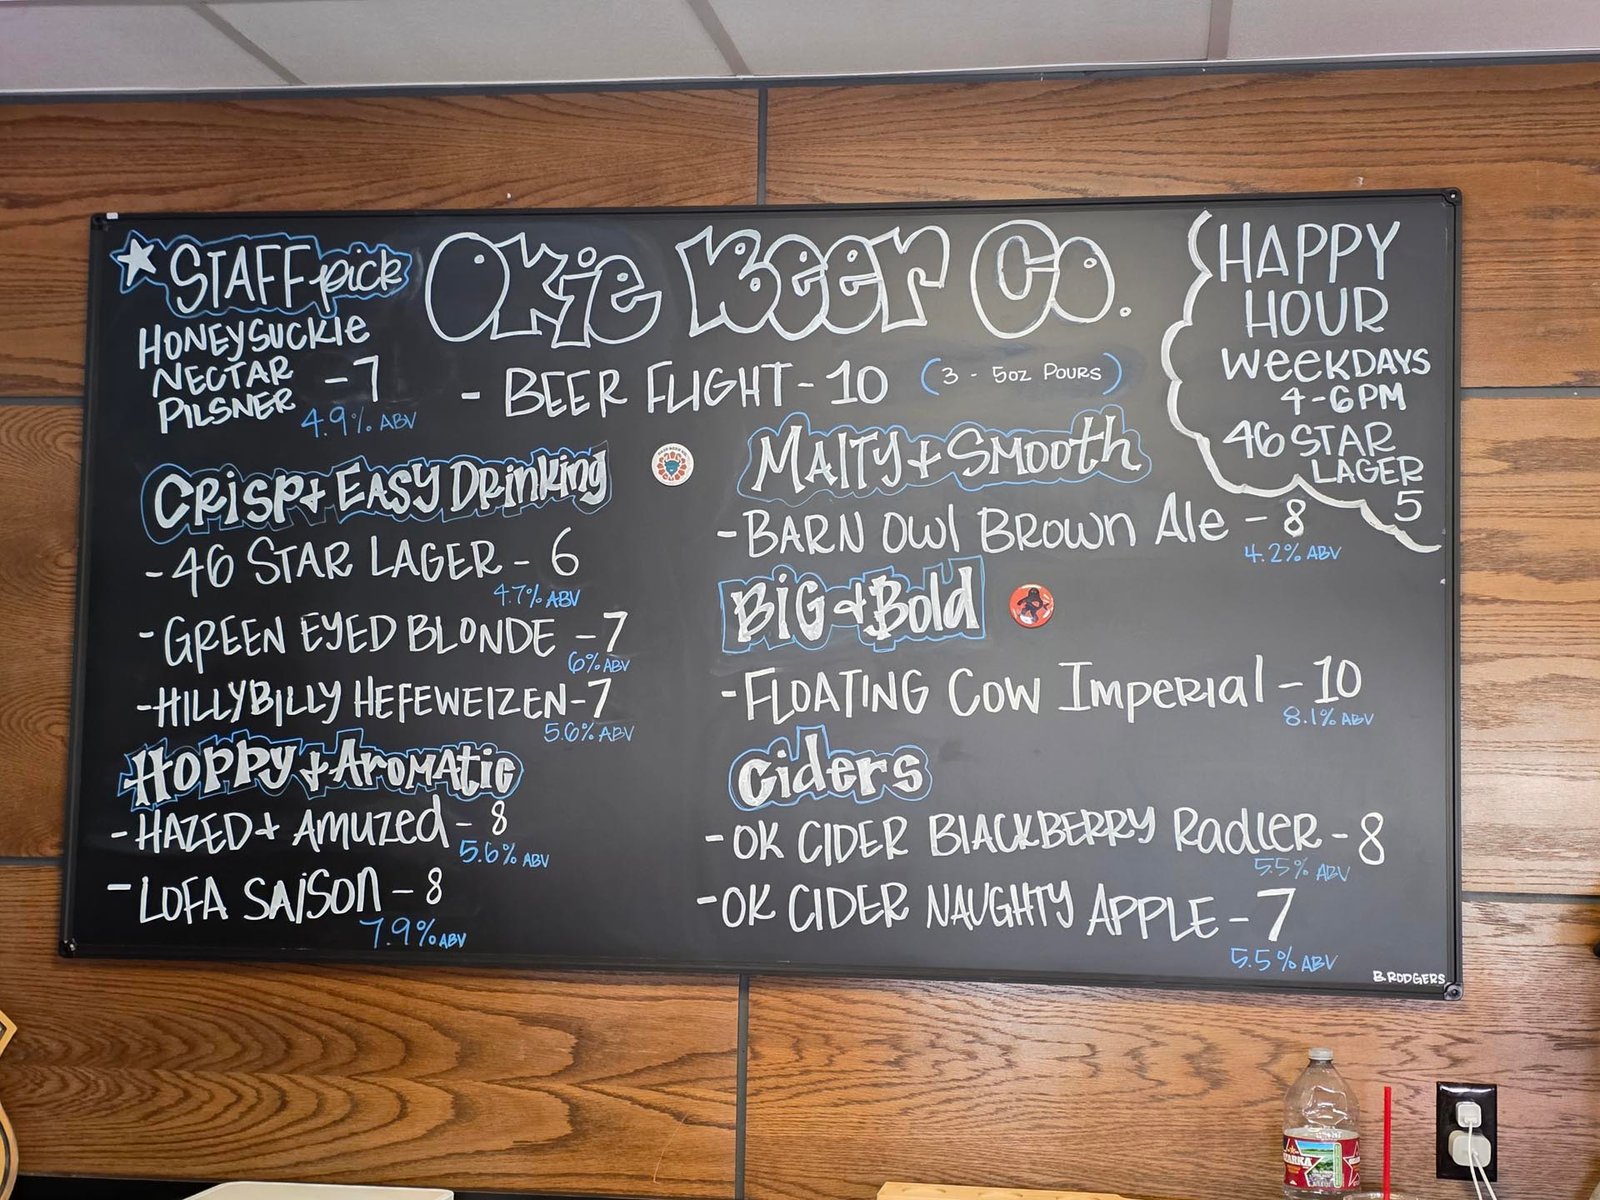 STAFF pick
HONEYSUCKLE
NECTAR
PILSNER - 7
4.9% ABV
Okie Beer Co.
- BEER FLIGHT - 10 (3 - 5oz POURS)
HAPPY
HOUR
WEEKDAYS
4-6PM
46 STAR
LAGER
5
CRISP + EASY DRINKING
- 46 STAR LAGER - 6
4.7% ABV
- GREEN EYED BLONDE - 7
6% ABV
- HILLYBILLY HEFEWEIZEN - 7
5.6% ABV
HOPPY + AROMATIC
- HAZED + AMUZED - 8
5.6% ABV
- LOFA SAISON - 8
7.9% ABV
MALTY + SMOOTH
- BARN OWL BROWN ALE - 8
4.2% ABV
BIG + BOLD
- FLOATING COW IMPERIAL - 10
8.1% ABV
Ciders
- OK CIDER BLACKBERRY RADLER - 8
5.5% ABV
- OK CIDER NAUGHTY APPLE - 7
5.5% ABV
B.RODGERS